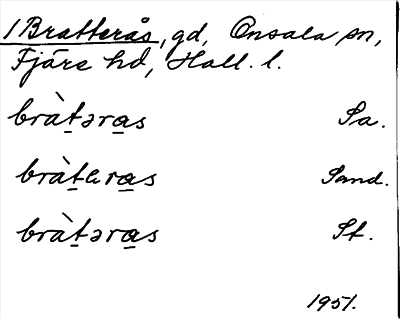 1 Bratterås, gd, Onsala sn,
Fjäre hd, Hall. l.
bràt̲əra̲s Sa.
bràt̲ɛra̲s Sand.
bràt̲əra̲s St.
1951.